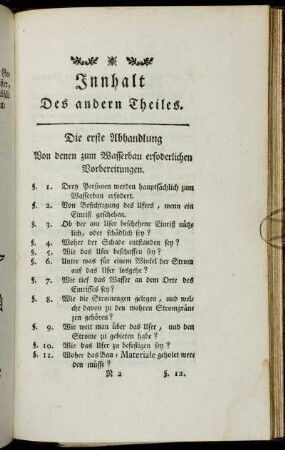 Innhalt
Des andern Theiles.
Die erste Abhandlung
Von denen zum Wasserbau erfoderlichen
Vorbereitungen.
§. 1. Drey Personen werden hauptsächlich zum
Wasserbau erfodert.
§. 2. Von Besichtigung des Ufers, wenn ein
Einriß geschehen.
§. 3. Ob der am Ufer beschehene Einriß nütz-
lich, oder schädlich sey?
§. 4. Woher der Schade entstanden sey?
§. 5. Wie das Ufer beschaffen sey?
§. 6. Unter was für einem Winkel der Strom
auf das Ufer losgehe?
§. 7. Wie tief das Wasser an dem Orte des
Einrisses sey?
§. 8. Wie die Stromengen gelegen, und wel-
che davon zu den wahren Stromgrän-
zen gehören?
§. 9. Wie weit man über das Ufer, und den
Strome zu gebieten habe?
§. 10. Wie das Ufer zu befestigen sey?
§. 11. Woher das Bau-Materiale geholet wer-
den müsse?
N 2 §. 12.